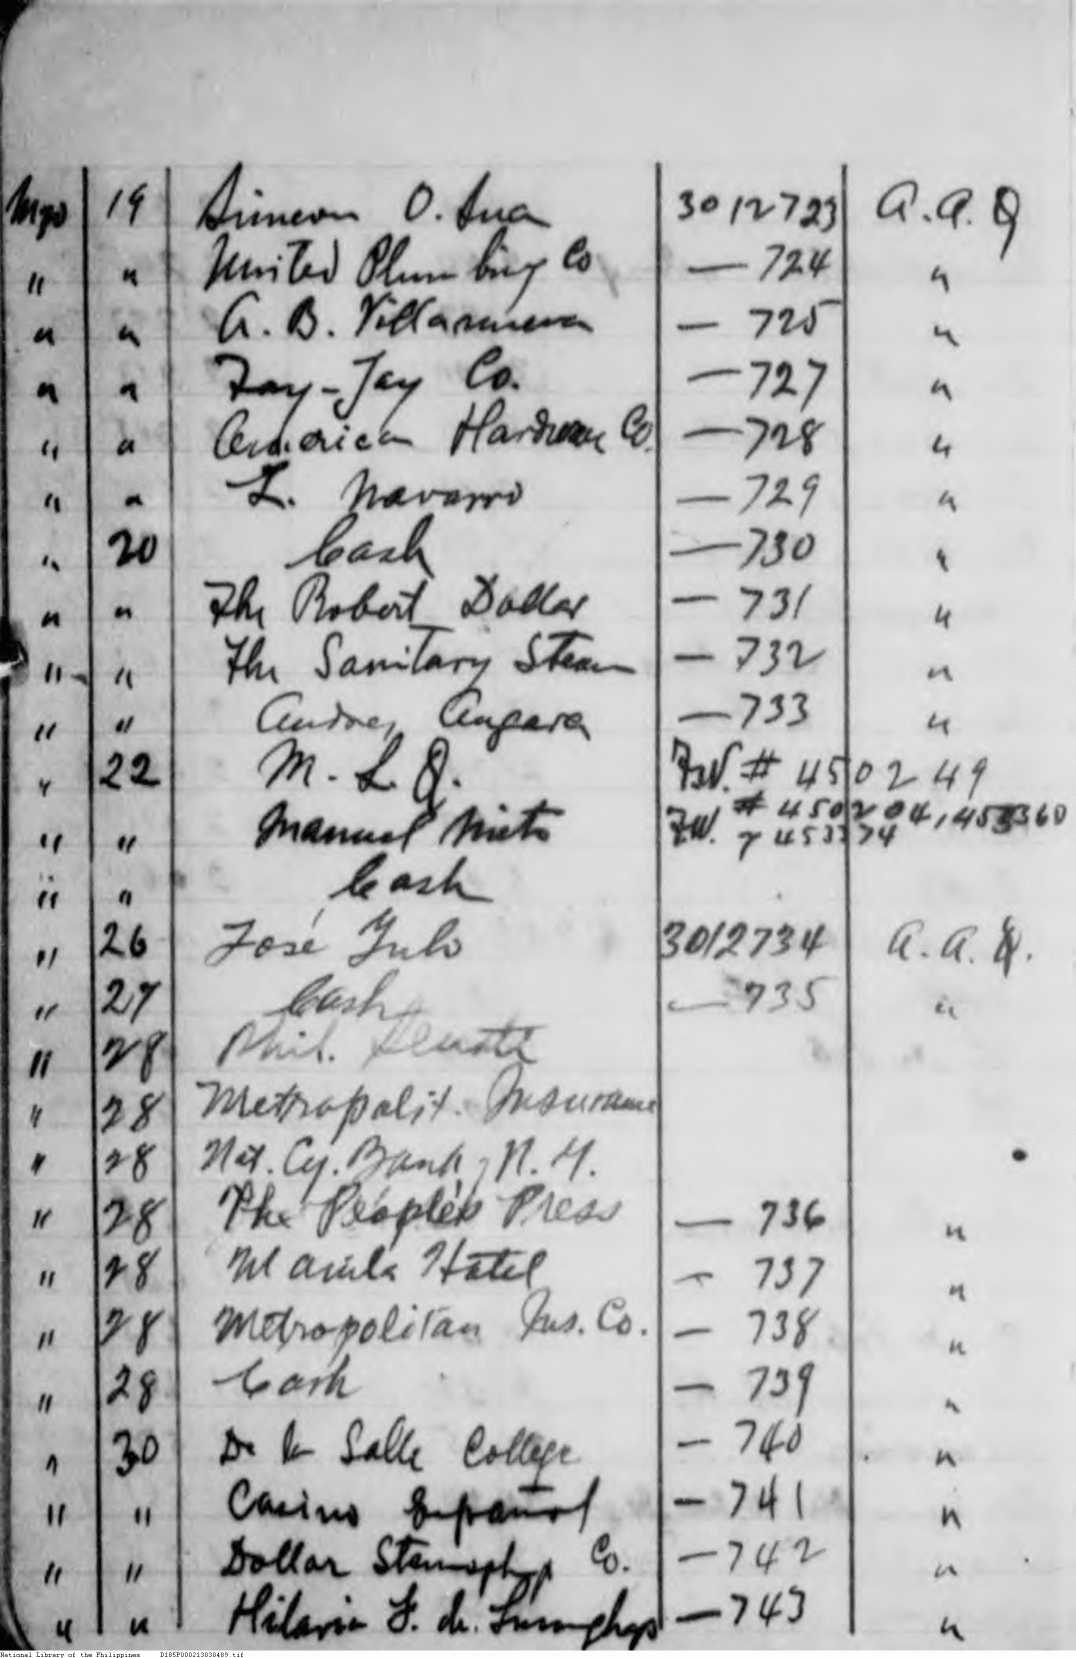 Myo 19 Simeon O. Sua 3012723 A. A. Q
" " United Plumbing Co — 724 "
" " A. B. Villanueva — 725 "
" " Fay-Jay Co. — 727 "
" " American Hardware Co. — 728 "
" " L. Navarro — 729 "
" 20 Cash — 730 "
" " The Robert Dollar — 731 "
" " The Sanitary Steam — 732 "
" " Andres Angara — 733 "
" 22 M. L. Q. # 450249
" " Manuel Nieto # 450204, 453360
453374
" " Cash
" 26 José Yulo 3012734 A. A. Q.
" 27 Cash — 735 "
" 28 Phil. Senate
" 28 Metropolit. Insurance
" 28 Nat. Cy. Bank, N. Y.
" 28 The People's Press — 736 "
" 28 Manila Hotel — 737 "
" 28 Metropolitan Ins. Co. — 738 "
" 28 Cash — 739 "
" 30 De la Salle College — 740 "
" " Casino Español — 741 "
" " Dollar Steamship Co. — 742 "
" " Hilaria F. de — 743 "
National Library of the Philippines D185P000213030409.tif